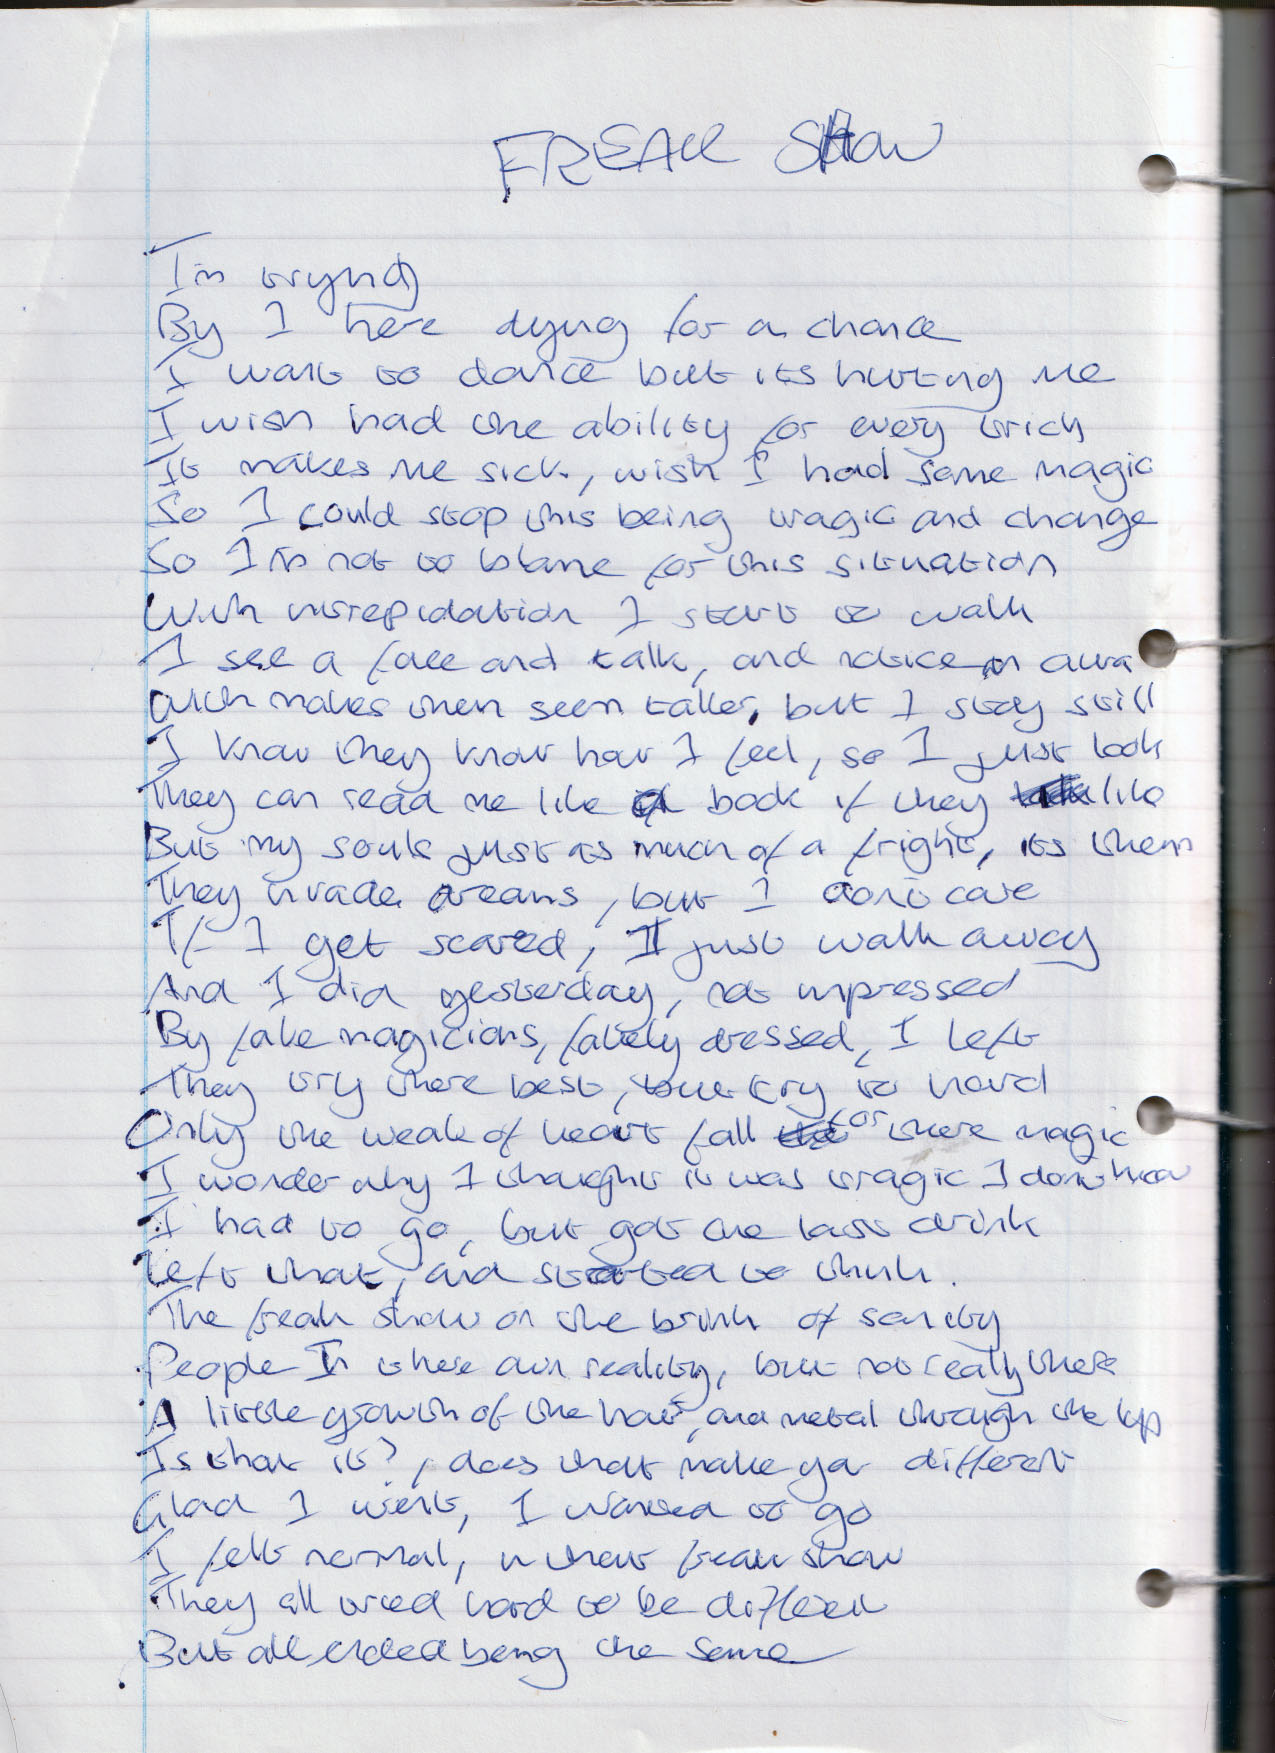 FREAK SHOW
I'm trying
By I here dying for a chance
I want to dance but its hurting me
I wish had the ability for every trick
It makes me sick, wish I had some magic
So I could stop this being tragic and change
So I'm not to blame for this situation
With intrepidation I start to walk
I see a face and talk, and notice an aura
Which makes them seem taller, but I stay still
I know they know how I feel, so I just look
They can read me like a book if they like
But my souls just as much of a fright, its them
They invade dreams, but I dont care
If I get scared, I just walk away
And I did yesterday, not impressed
By fake magicians, fakely dressed, I left
They try there best, but try to hard
Only the weak of heart fall for there magic
I wonder why I thought it was tragic I dont know
I had to go, but got one last drink
Left that, and started to think.
The freak show on the brink of sanity
People In there own reality, but not really there
A little growth of the hair, and metal through the lip
Is that it?, does that make you different
Glad I went, I wanted to go
I felt normal, in their freak show
They all tried hard to be different
But all ended being the same